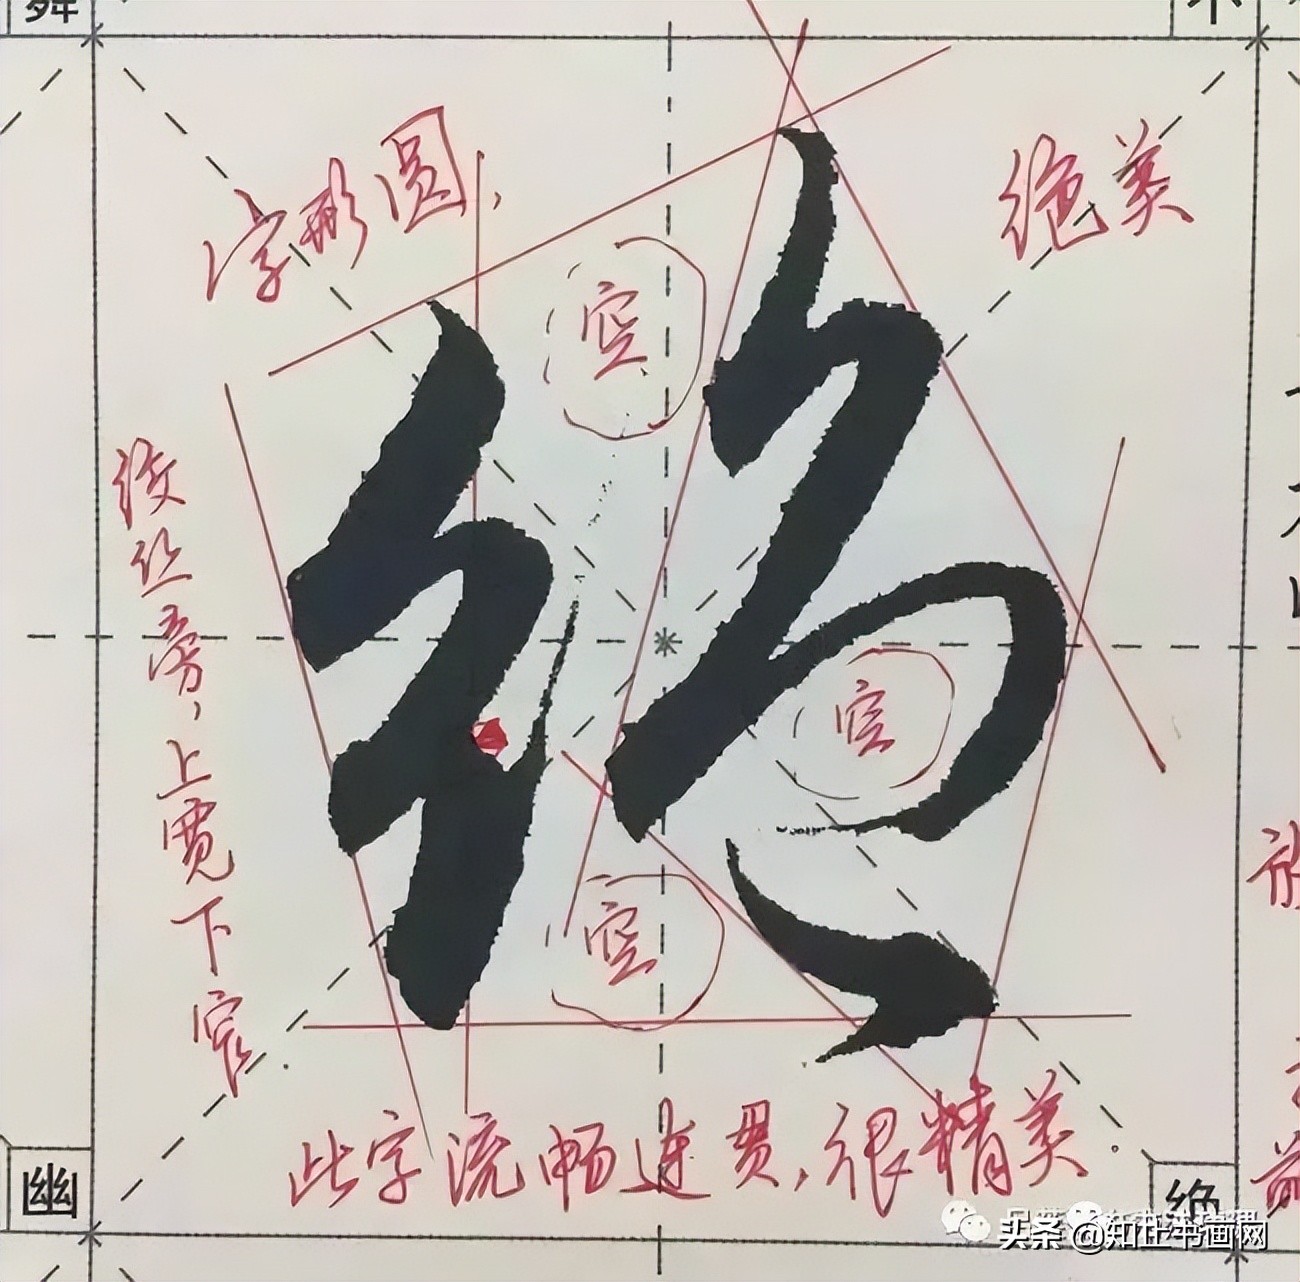 舞
不
字形圆，
绝美
空
绝
绞丝旁，上宽下窄
空
空
此字流畅连贯，很精美.
幽
绝
头条 @知止书画网